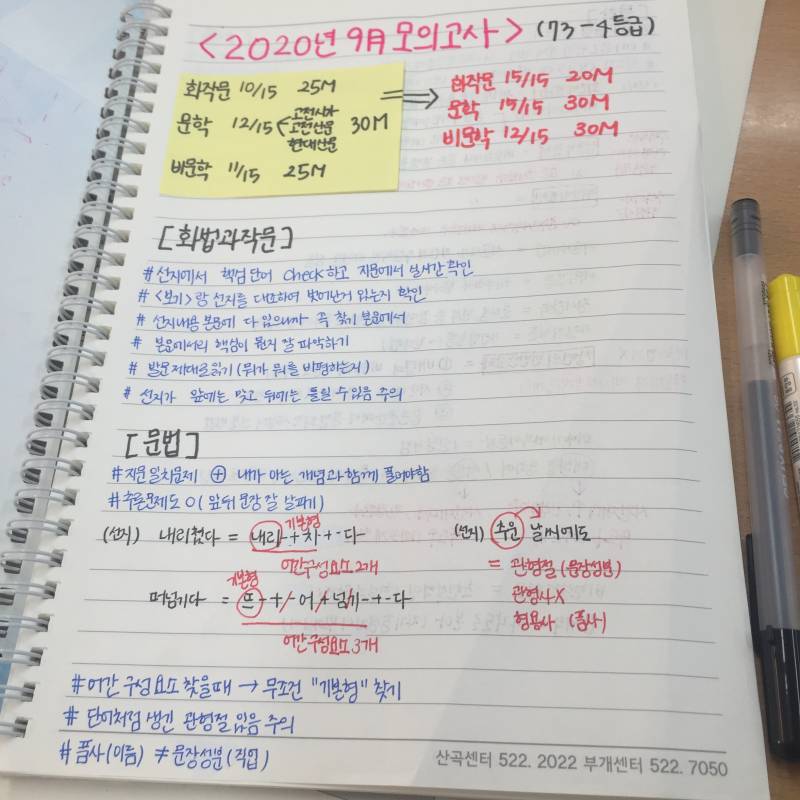 <2020년 9월 모의고사> (73-4등급)
화작문 10/15 25M
문학 12/15 고전시가 고전산문 현대산문 30M
비문학 11/15 25M
⇒ 화작문 15/15 20M
문학 15/15 30M
비문학 12/15 30M
[화법과작문]
# 선지에서 핵심단어 check하고 지문에서 실시간 확인
# <보기>랑 선지를 대조하여 벗어난거 있는지 확인
# 선지내용 본문에 다 있으니까 즉 찾기 본문에서
# 본문에서의 핵심이 뭔지 잘 파악하기
# 발문제대로읽기 (뭐가 뭐를 비평하는지)
# 선지가 앞에는 맞고 뒤에는 틀릴 수 있음 주의
[문법]
# 지문일치문제 ⊕ 내가 아는 개념과 함께 풀어야함
# 추론문제도 O (앞뒤 문장 잘 살피기)
(선지) 내리쳤다 = 내리-+치-+-다
기본형
어간구성요소 2개
(선지) 추운 날씨에도
= 관형절 (문장성분)
관형사X
형용사 (품사)
떠넘기다 = 뜨-+-어+넘기-+-다
기본형
어간구성요소 3개
# 어간 구성요소 찾을때 → 무조건 "기본형" 찾기
# 단어처럼 생긴 관형절 있음 주의
# 품사(이름) ≠ 문장성분(직업)
산곡센터 522. 2022 부개센터 522. 7050